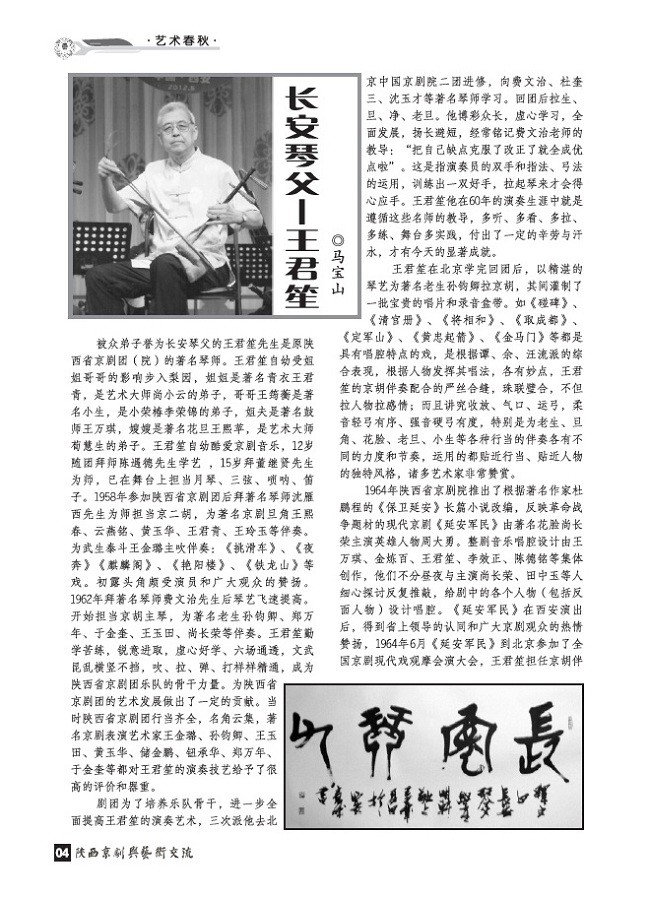 ·艺术春秋·
长安琴父—王君笙
◎马宝山
被众弟子誉为长安琴父的王君笙先生是原陕
西省京剧团（院）的著名琴师。王君笙自幼受姐
姐哥哥的影响步入梨园，姐姐是著名青衣王君
青，是艺术大师尚小云的弟子，哥哥王筠蘅是著
名小生，是小荣椿李荣锦的弟子，姐夫是著名鼓
师王万琪，嫂嫂是著名花旦王熙苹，是艺术大师
荀慧生的弟子。王君笙自幼酷爱京剧音乐，12岁
随团拜师陈遹德先生学艺 ，15岁拜董继贤先生
为师，已在舞台上担当月琴、三弦、唢呐、笛
子。1958年参加陕西省京剧团后拜著名琴师沈雁
西先生为师担当京二胡，为著名京剧旦角王熙
春、云燕铭、黄玉华、王君青、王玲玉等伴奏。
为武生泰斗王金璐主吹伴奏：《挑滑车》、《夜
奔》《麒麟阁》、《艳阳楼》、《铁龙山》等
戏。初露头角颇受演员和广大观众的赞扬。
1962年拜著名琴师费文治先生后琴艺飞速提高。
开始担当京胡主琴，为著名老生孙钧卿、郑万
年、于金奎、王玉田、尚长荣等伴奏。王君笙勤
学苦练，锐意进取，虚心好学、六场通透，文武
昆乱横竖不挡，吹、拉、弹、打样样精通，成为
陕西省京剧团乐队的骨干力量。为陕西省
京剧团的艺术发展做出了一定的贡献。当
时陕西省京剧团行当齐全，名角云集，著
名京剧表演艺术家王金璐、孙钧卿、王玉
田、黄玉华、储金鹏、钮承华、郑万年、
于金奎等都对王君笙的演奏技艺给予了很
高的评价和器重。
剧团为了培养乐队骨干，进一步全
面提高王君笙的演奏艺术，三次派他去北
京中国京剧院二团进修，向费文治、杜奎
三、沈玉才等著名琴师学习。回团后拉生、
旦、净、老旦。他博彩众长，虚心学习，全
面发展，扬长避短，经常铭记费文治老师的
教导：“把自己缺点克服了改正了就全成优
点啦”。这是指演奏员的双手和指法、弓法
的运用，训练出一双好手，拉起琴来才会得
心应手。王君笙他在60年的演奏生涯中就是
遵循这些名师的教导，多听、多看、多拉、
多练、舞台多实践，付出了一定的辛劳与汗
水，才有今天的显著成就。
王君笙在北京学完回团后，以精湛的
琴艺为著名老生孙钧卿拉京胡，其间灌制了
一批宝贵的唱片和录音盒带。如《碰碑》、
《清官册》、《将相和》、《取成都》、
《定军山》、《黄忠起箭》、《金马门》等都是
具有唱腔特点的戏，是根据谭、余、汪流派的综
合表现，根据人物发挥其唱法，各有妙点，王君
笙的京胡伴奏配合的严丝合缝，珠联璧合，不但
拉人物拉感情；而且讲究收放、气口、运弓，柔
音轻弓有序、强音硬弓有度，特别是为老生、旦
角、花脸、老旦、小生等各种行当的伴奏各有不
同的力度和节奏，运用的都贴近行当、贴近人物
的独特风格，诸多艺术家非常赞赏。
1964年陕西省京剧院推出了根据著名作家杜
鹏程的《保卫延安》长篇小说改编，反映革命战
争题材的现代京剧《延安军民》由著名花脸尚长
荣主演英雄人物周大勇。整剧音乐唱腔设计由王
万琪、金炼百、王君笙、李效正、陈德铭等集体
创作，他们不分昼夜与主演尚长荣、田中玉等人
细心探讨反复推敲，给剧中的各个人物（包括反
面人物）设计唱腔。《延安军民》在西安演出
后，得到省上领导的认同和广大京剧观众的热情
赞扬，1964年6月《延安军民》到北京参加了全
国京剧现代戏观摩会演大会，王君笙担任京胡伴
04 陕西京剧与艺术交流